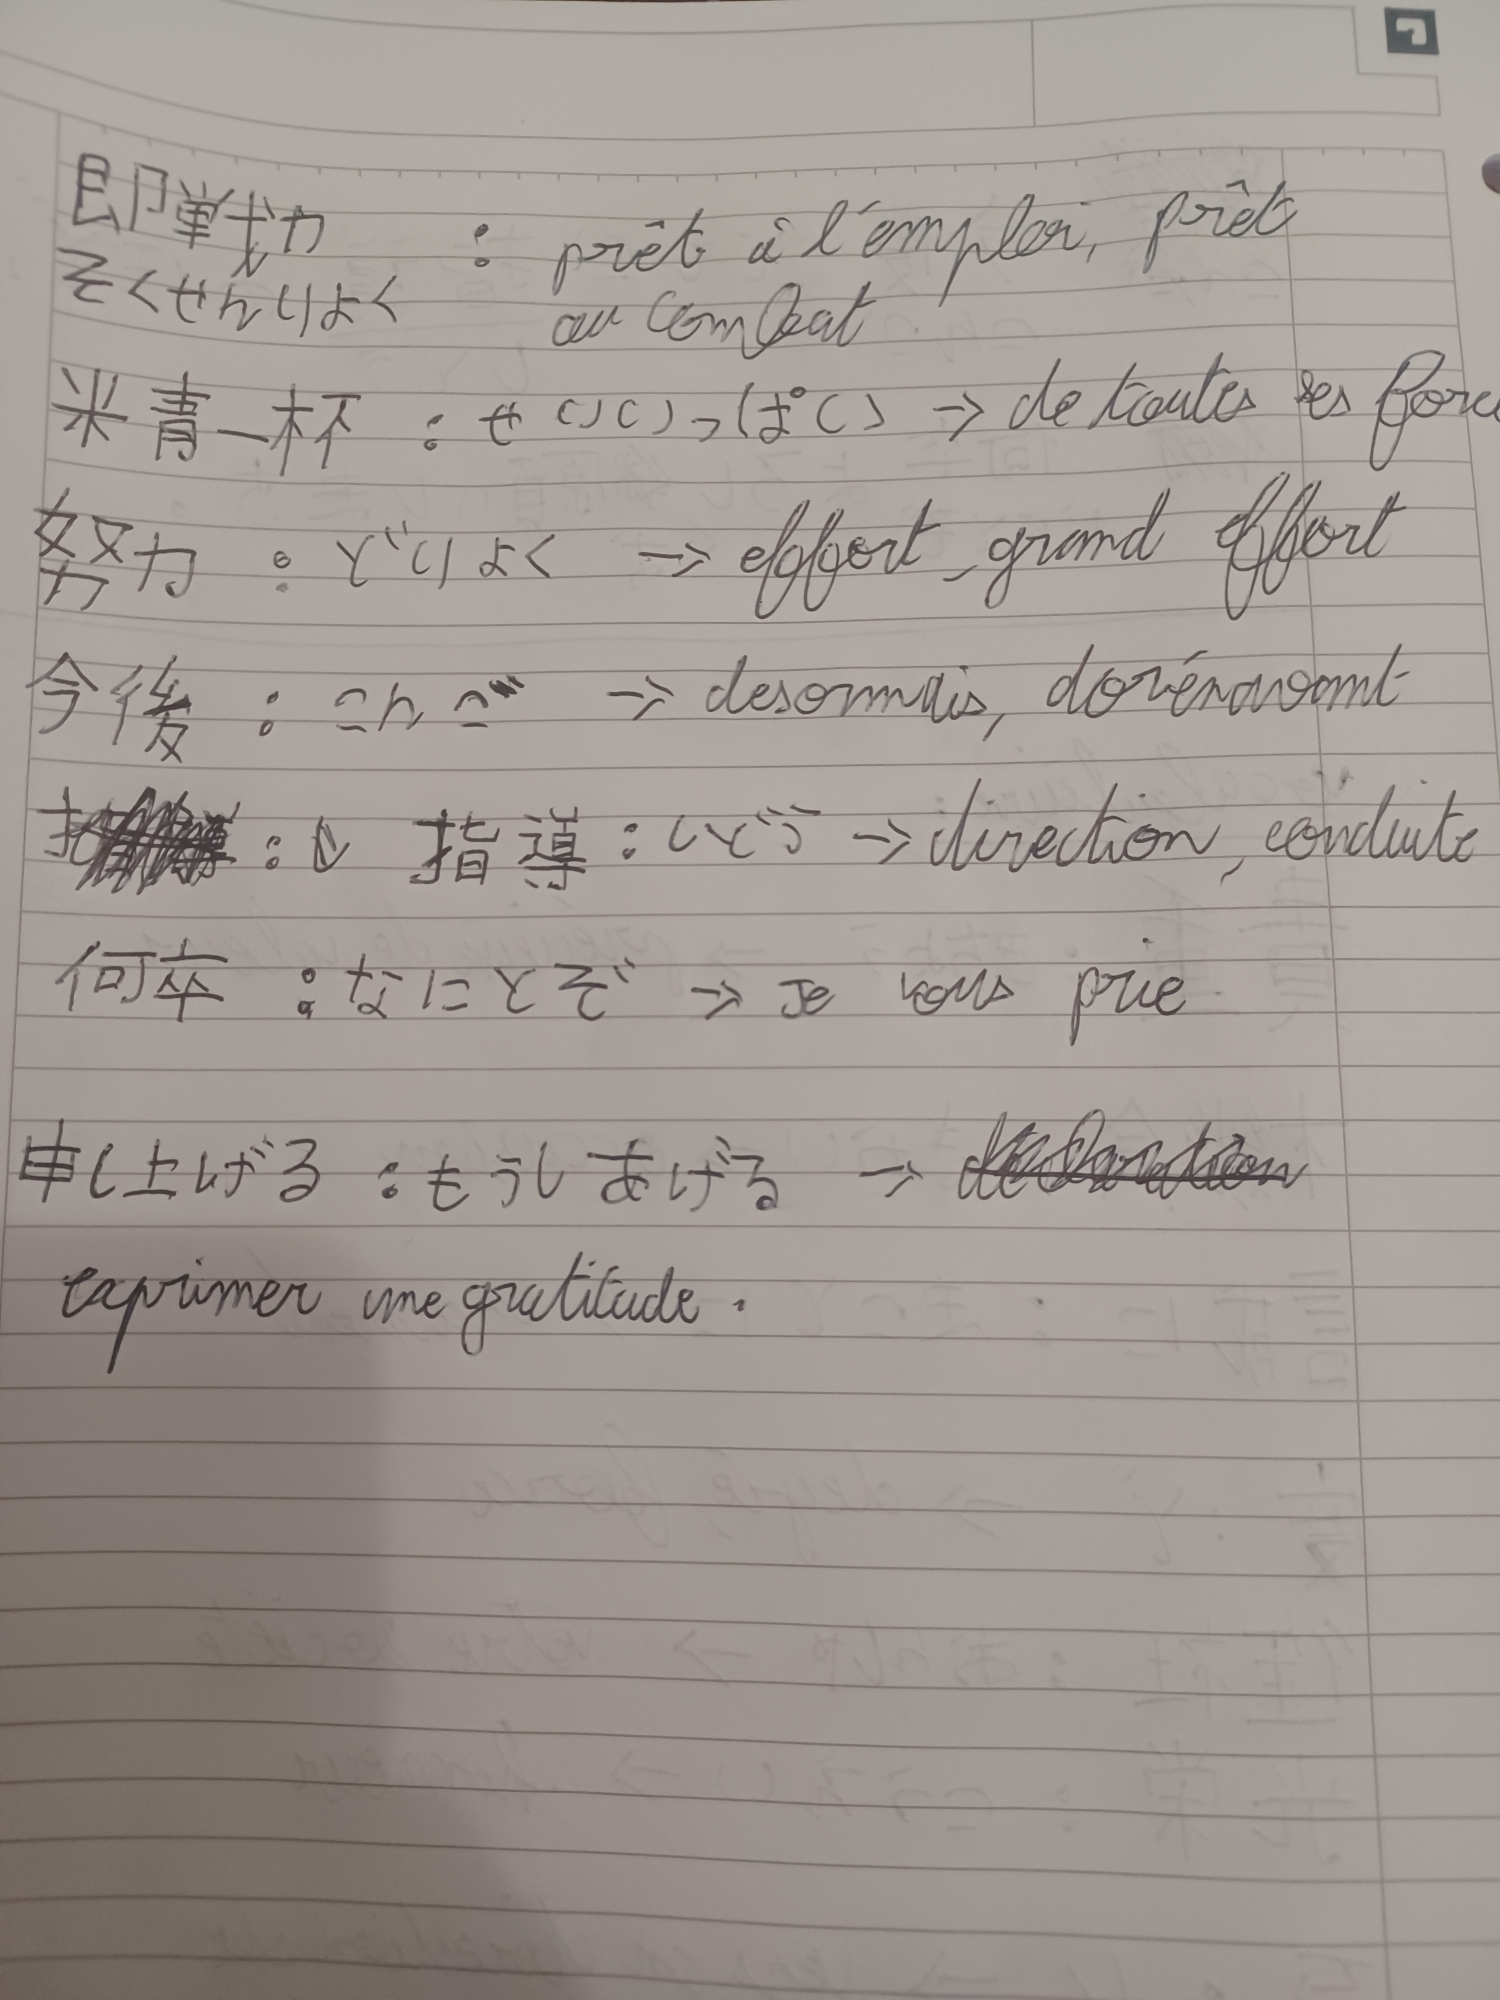 即戦力 : prêt à l'emploi, prêt
そくせんりょく au combat
精一杯 : せいいっぱい → de toutes ses force
努力 : どりょく → effort, grand effort
今後 : こんご → desormais, dorénavant
指導 : しどう → direction, conduite
何卒 : なにとぞ → Je vous prie
申し上げる : もうしあげる →
exprimer une gratitude.